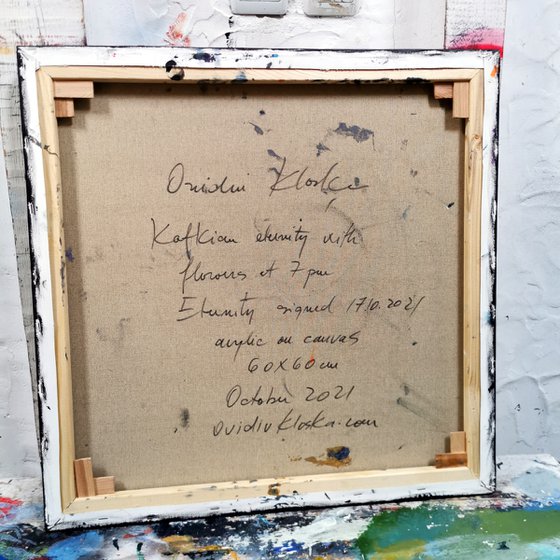 Ovidiu Kloska
Kafkian eternity with
flowers at 7 pm
Eternity signed 17.10.2021
acrylic on canvas
60x60cm
October 2021
ovidiukloska.com